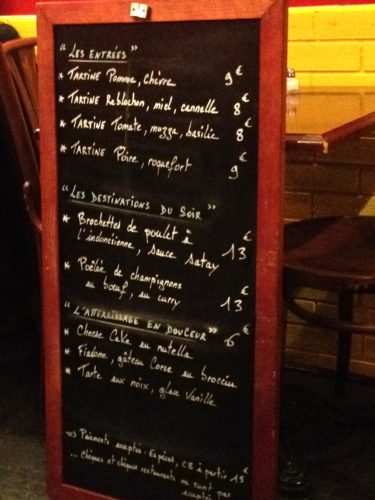 "LES ENTRÉES"
* TARTINE Pomme, chèvre 9€
* TARTINE Reblochon, miel, cannelle 8€
* TARTINE Tomate, mozza, basilic 8€
* TARTINE Poire, roquefort 9€
"LES DESTINATIONS DU SOIR"
* Brochettes de poulet à
l'indonésienne, sauce satay 13€
* Poêlée de champignons
au boeuf, au curry 13€
"L'ATTERRISSAGE EN DOUCEUR" 6€
* Cheese Cake au nutella
* Fiadone, gâteau Corse au brocciu
* Tarte aux noix, glace Vanille
=> Paiements acceptés : Espèces, CB à partir 15€
... Chèques et chèques restaurants ne sont pas
acceptés